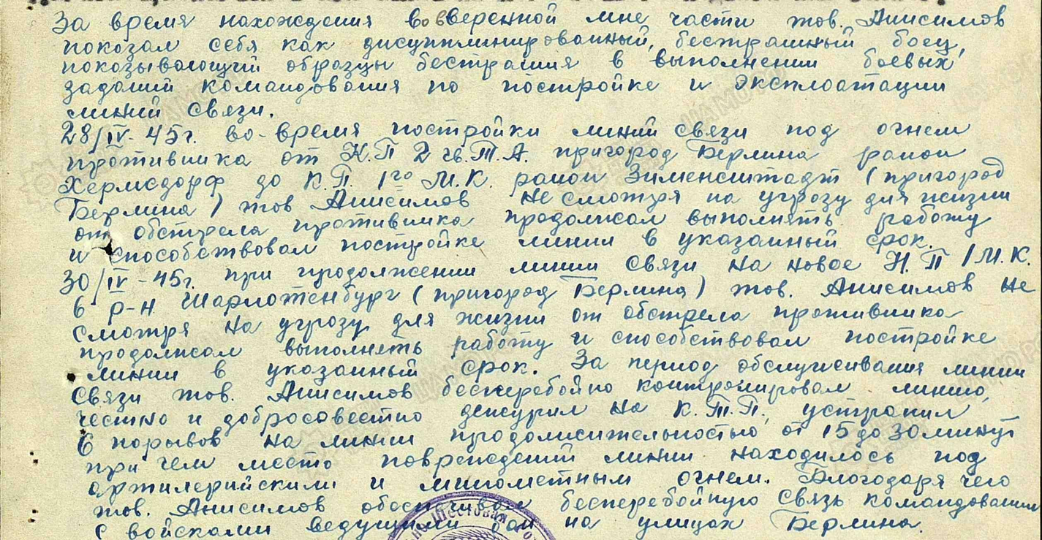 За время нахождения во вверенной мне части тов. Анисимов
показал себя как дисциплинированный, бестрашный боец,
показывающий образцы бестрашия в выполнении боевых
заданий командования по постройке и эксплоатации
линий связи.
28/IV-45г. во-время постройки линий связи под огнем
противника от Н.П 2 гв.Т.А. пригород Берлина район
Хермсдорф до К.П. 1го М.К. район Зименсштадт (пригород
Берлина) тов Анисимов не смотря на угрозу для жизни
от обстрела противника продолжал выполнять работу
и способствовал постройке линии в указанный срок.
30/IV-45г. при продолжении линии связи на новое Н.П 1 М.К.
в р-н Шарлотенбург (пригород Берлина) тов. Анисимов не
смотря на угрозу для жизни от обстрела противника
продолжал выполнять работу и способствовал постройке
линии в указанный срок. За период обслуживания линии
связи тов. Анисимов бесперебойно контролировал линию,
честно и добросовестно дежурил на К.Т.П., устранил
6 порывов на линии продолжительностью от 15 до 30 минут
при чем место повреждений линии находилось под
артилерийским и минометным огнем. Благодаря чего
тов. Анисимов обеспечивал бесперебойную связь командования
с войсками ведущими бои на улицах Берлина.